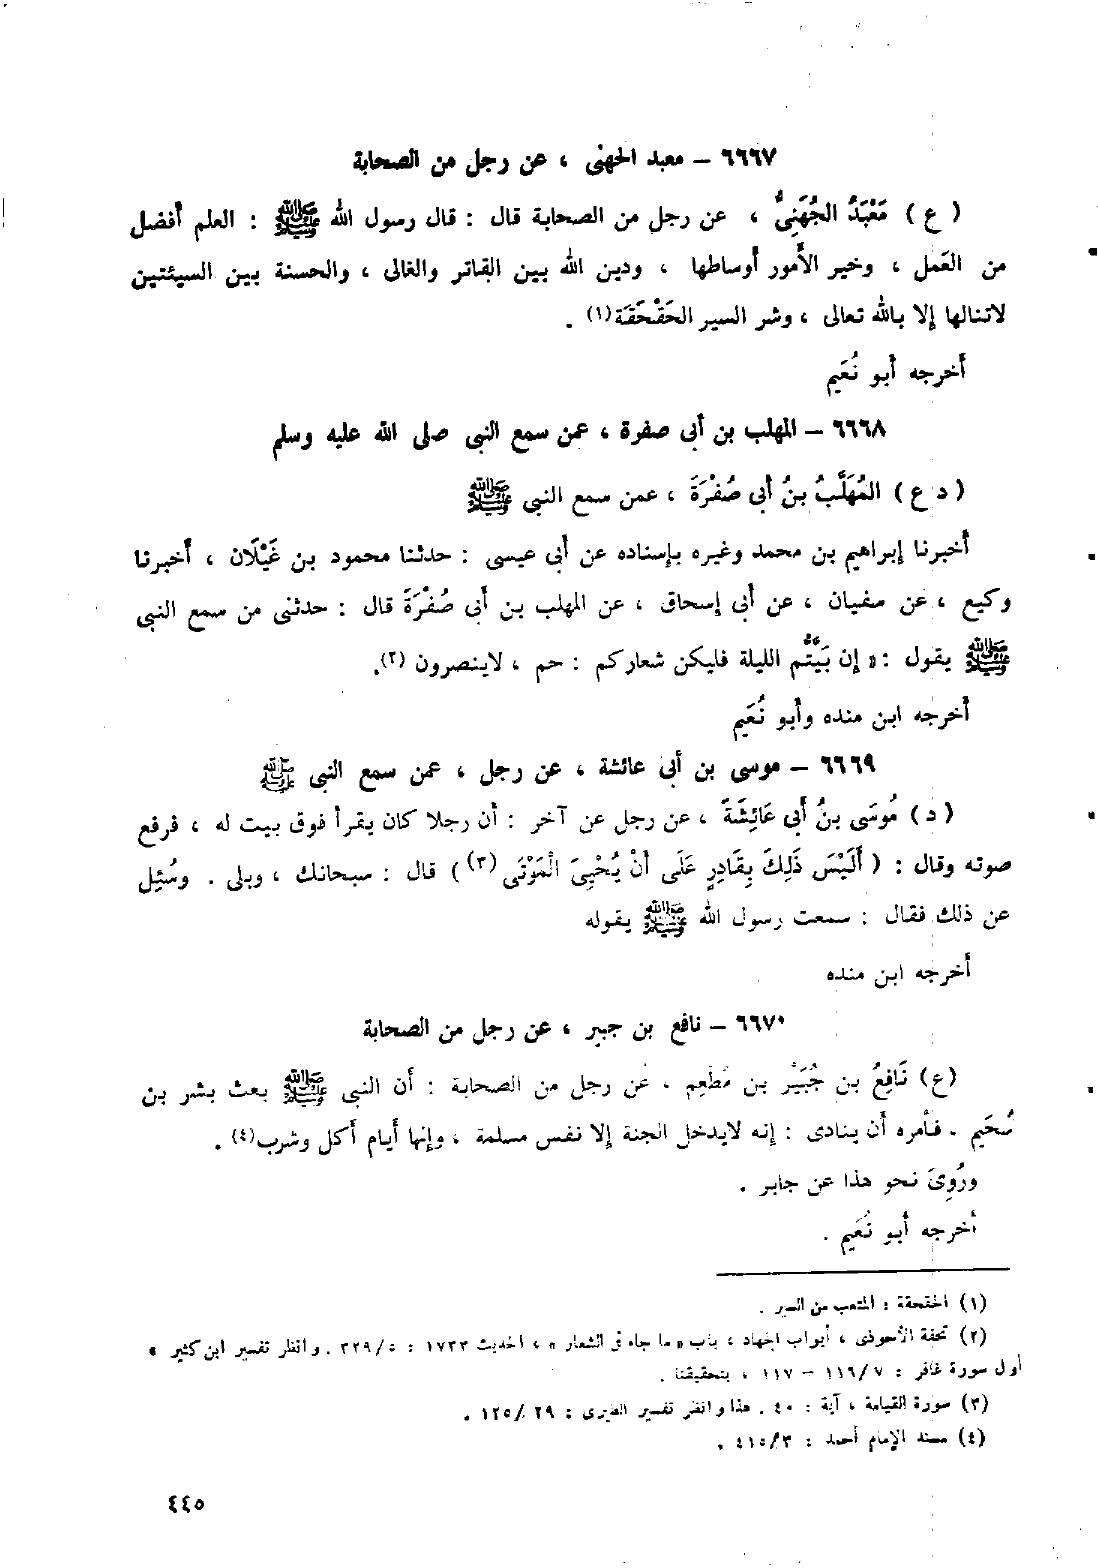 ٦٦٦٧ – معبد الجهنى ، عن رجل من الصحابة
( ع ) مَعْبَدُ الجُهَنِىُّ ، عن رجل من الصحابة قال : قال رسول الله ﷺ : العلم أفضل
من العَمل ، وخير الأمور أوساطها ، ودين الله بين القاتر والغالى ، والحسنة بين السيئتين
لاتنالها إلا بالله تعالى ، وشر السير الحَقْحَقَة(١) .
أخرجه أبو نُعَيم
٦٦٦٨ – المهلب بن أبى صفرة ، عمن سمع النبى صلى الله عليه وسلم
( د ع ) المُهَلَّبُ بنُ أبى صُفْرَةَ ، عمن سمع النبى ﷺ
أخبرنا إبراهيم بن محمد وغيره بإسناده عن أبى عيسى : حدثنا محمود بن غَيْلَان ، أخبرنا
وكيع ، عن سفيان ، عن أبى إسحاق ، عن المهلب بن أبى صُفْرَةَ قال : حدثنى من سمع النبى
ﷺ يقول : « إن بَيَّتُم الليلة فليكن شعاركم : حم ، لاينصرون (٢).
أخرجه ابن منده وأبو نُعَيم
٦٦٦٩ – موسى بن أبى عائشة ، عن رجل ، عمن سمع النبى ﷺ
( د ) مُوسَى بنُ أبى عَائِشَةَ ، عن رجل عن آخر : أن رجلا كان يقرأ فوق بيت له ، فرفع
صوته وقال : ( أَلَيْسَ ذَلِكَ بِقَادِرٍ عَلَى أَنْ يُحْيِىَ الْمَوْتَى (٣) ) قال : سبحانك ، وبلى . وسُئِل
عن ذلك فقال : سمعت رسول الله ﷺ يقوله
أخرجه ابن منده
٦٦٧٠ – نافع بن جبير ، عن رجل من الصحابة
(ع) نَافِعُ بن جُبَيْر بن مُطْعِم ، عن رجل من الصحابة : أن النبى ﷺ بعث بشر بن
سُحَيم . فأمره أن ينادى : إنه لايدخل الجنة إلا نفس مسلمة ، وإنها أيام أكل وشرب(٤) .
ورُوِىَ نحو هذا عن جابر .
أخرجه أبو نُعَيم .
(١) الحقحقة : المتعب من السير .
(٢) تحفة الأحوذى ، أبواب الجهاد ، باب « ما جاء فى الشعار » ، الحديث ١٧٣٣ : ٥/ ٣٢٩ . وانظر تفسير ابن كثير «
أول سورة غافر : ٧/ ١١٦ – ١١٧ ، بتحقيقنا .
(٣) سورة القيامة ، آية : ٤٠ . هذا وانظر تفسير الطبرى : ٢٩ /١٢٥ .
(٤) مسند الإمام أحمد : ٣/ ٤١٥ .
٤٤٥